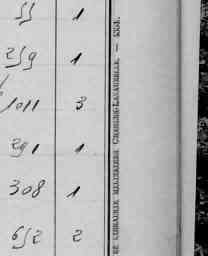 55 1
259 1
1011 3
291 1
308 1
652 2
LIBRAIRIE MILITAIRE CHARLES-LAVAUZELLE. —